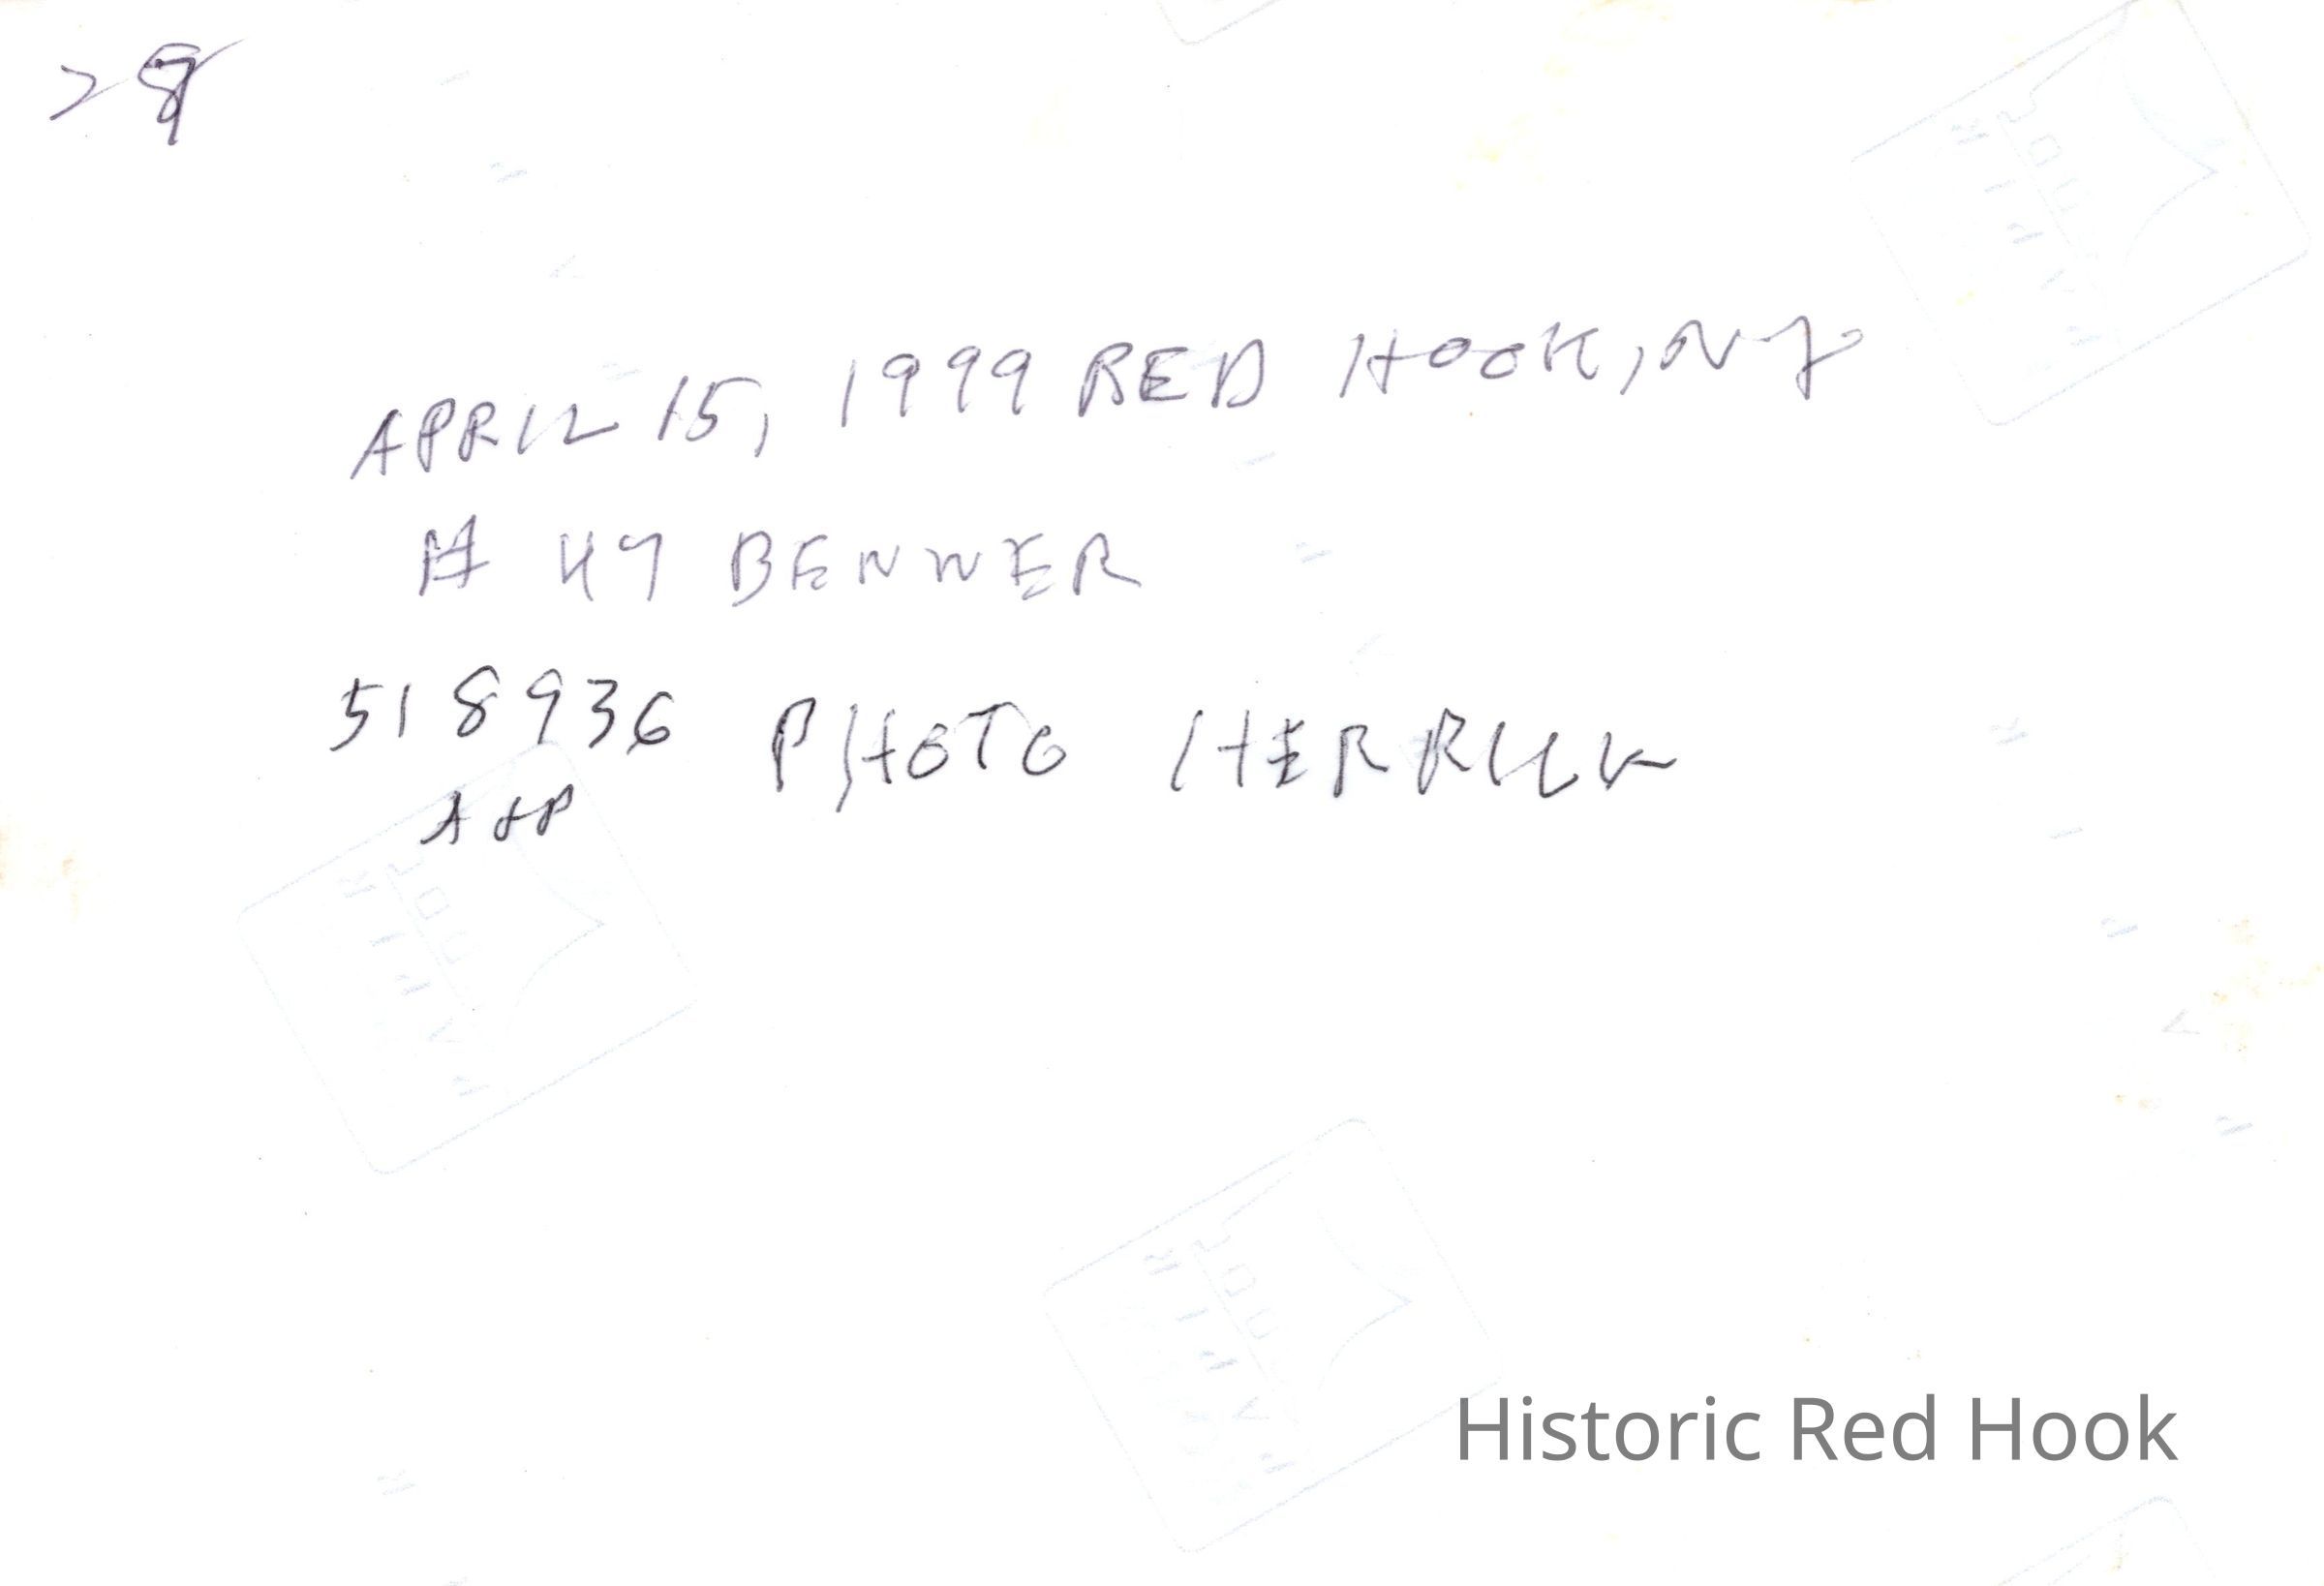 APRIL 15, 1999 RED HOOK, NY
# 49 BENNER
518936 PHOTO HERRICK
Historic Red Hook